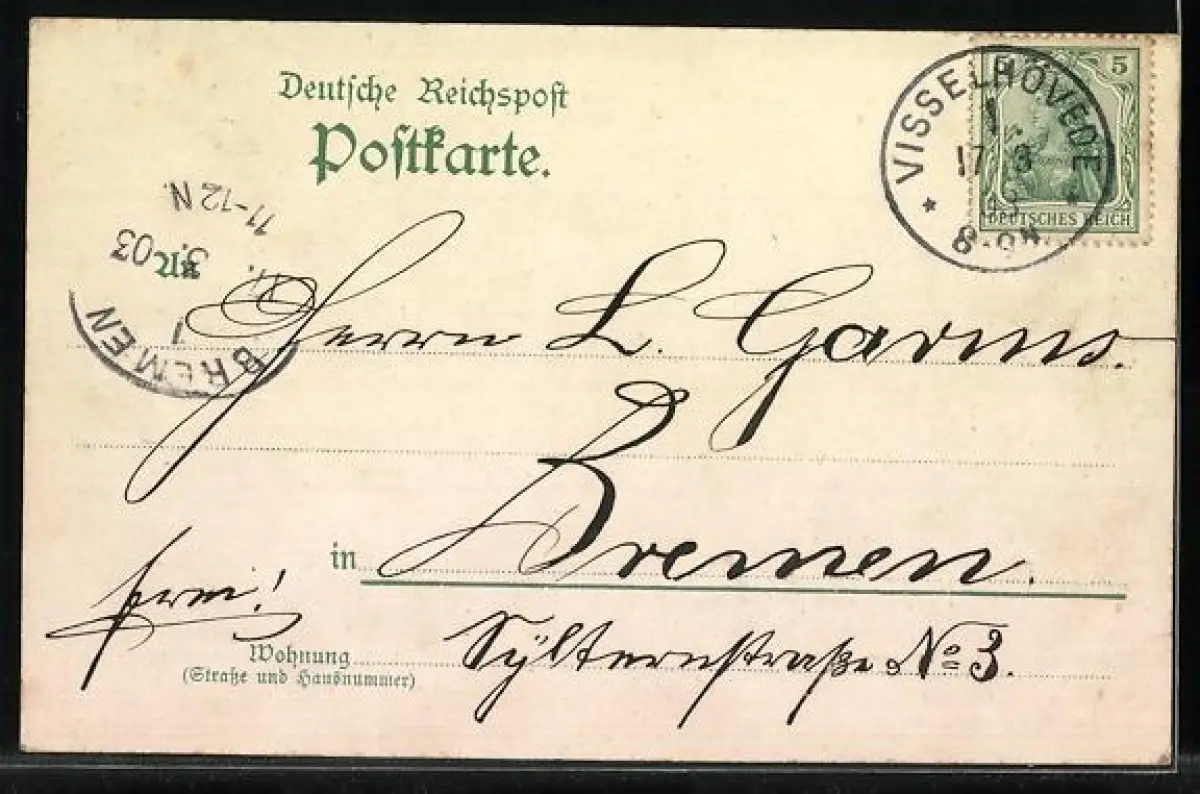 Deutsche Reichspost
Postkarte.
5 5
DEUTSCHES REICH
VISSELHÖVEDE
17 3
03
8-9N
11-12N.
3.03
BREMEN
1
An
Herrn L. Garms.
in Bremen.
frei!
Wohnung
(Straße und Hausnummer)
Sylternstraße No 3.